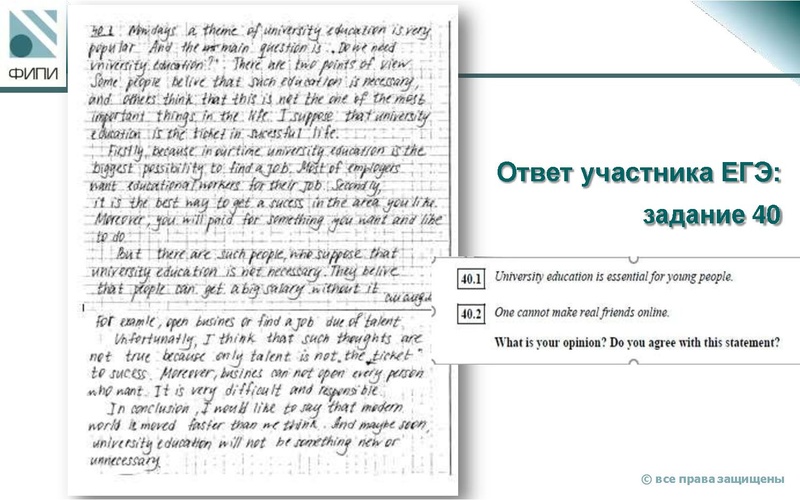 ФИПИ
40.1 Nowdays a theme of university education is very
popular. And the main question is „Do we need
university education?" There are two points of view.
Some people belive that such education is necessary,
and others think that this is not the one of the most
important things in the life. I suppose that university
education is the ticket in sucessful life.
Firstly, because in our time university education is the
biggest possibility to find a job. Most of employers
want educational workers for their job. Secondly,
it is the best way to get a sucess in the area you like.
Moreover, you will paid for something you want and like
to do
But there are such people, who suppose that
university education is not necessary. They belive
that people can get a big salary without it
For examle, open busines or find a job due of talent.
Unfortunatly, I think that such thoughts are
not true because only talent is not the „ticket"
to sucess. Moreover, busines can not open every person
who want. It is very difficult and responsible.
In conclusion, I would like to say that modern
world is moved faster than we think. And maybe soon,
university education will not be something new or
unnecessary.
Ответ участника ЕГЭ:
задание 40
40.1 University education is essential for young people.
40.2 One cannot make real friends online.
What is your opinion? Do you agree with this statement?
© все права защищены